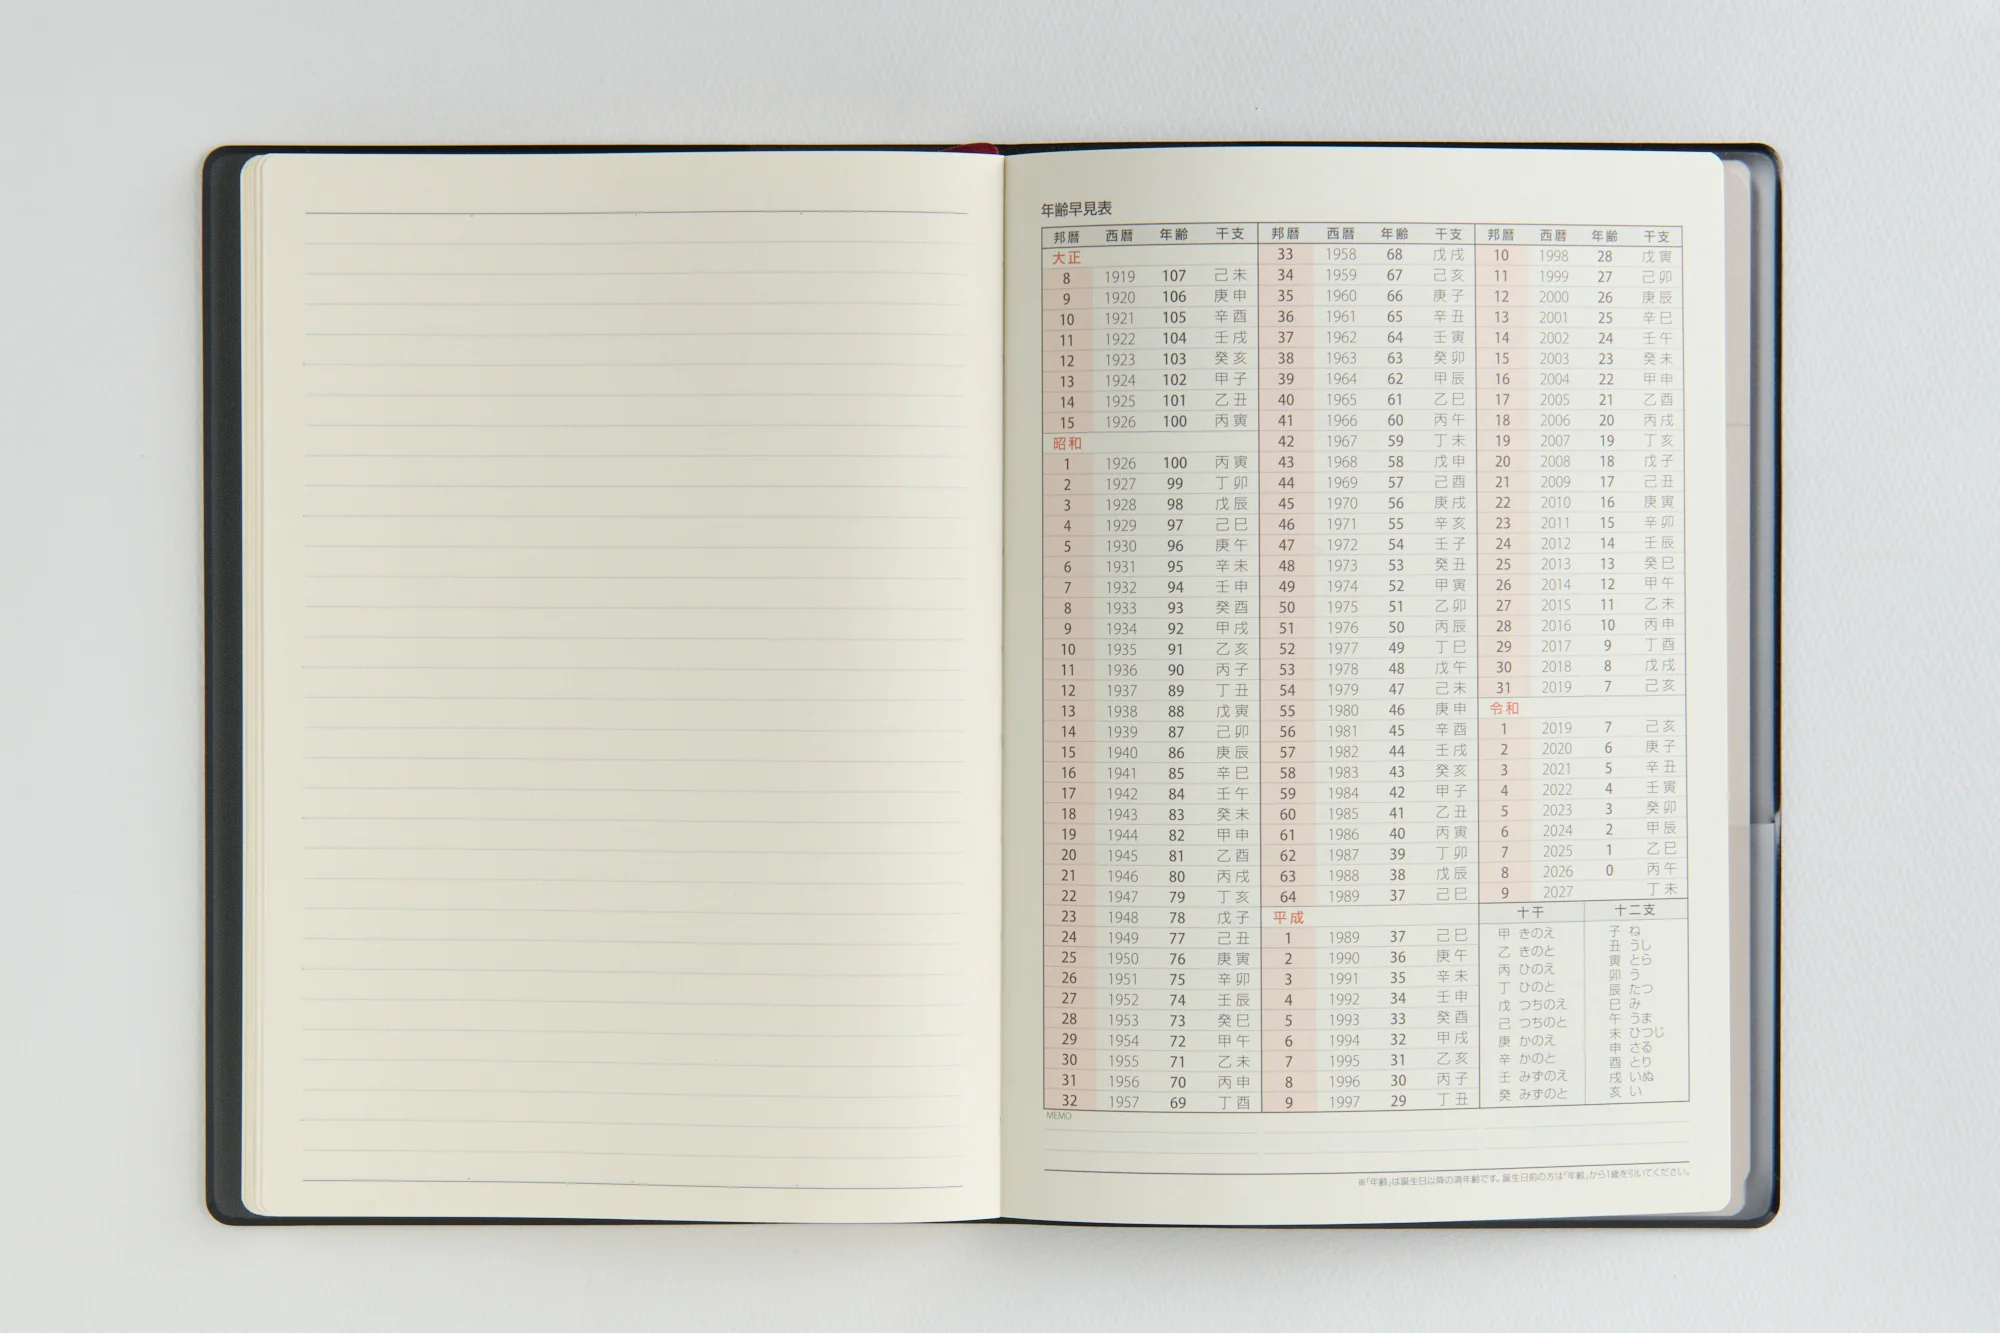 年齢早見表
邦暦 西暦 年齢 干支
大正
8 1919 107 己未
9 1920 106 庚申
10 1921 105 辛酉
11 1922 104 壬戌
12 1923 103 癸亥
13 1924 102 甲子
14 1925 101 乙丑
15 1926 100 丙寅
昭和
1 1926 100 丙寅
2 1927 99 丁卯
3 1928 98 戊辰
4 1929 97 己巳
5 1930 96 庚午
6 1931 95 辛未
7 1932 94 壬申
8 1933 93 癸酉
9 1934 92 甲戌
10 1935 91 乙亥
11 1936 90 丙子
12 1937 89 丁丑
13 1938 88 戊寅
14 1939 87 己卯
15 1940 86 庚辰
16 1941 85 辛巳
17 1942 84 壬午
18 1943 83 癸未
19 1944 82 甲申
20 1945 81 乙酉
21 1946 80 丙戌
22 1947 79 丁亥
23 1948 78 戊子
24 1949 77 己丑
25 1950 76 庚寅
26 1951 75 辛卯
27 1952 74 壬辰
28 1953 73 癸巳
29 1954 72 甲午
30 1955 71 乙未
31 1956 70 丙申
32 1957 69 丁酉
邦暦 西暦 年齢 干支
33 1958 68 戊戌
34 1959 67 己亥
35 1960 66 庚子
36 1961 65 辛丑
37 1962 64 壬寅
38 1963 63 癸卯
39 1964 62 甲辰
40 1965 61 乙巳
41 1966 60 丙午
42 1967 59 丁未
43 1968 58 戊申
44 1969 57 己酉
45 1970 56 庚戌
46 1971 55 辛亥
47 1972 54 壬子
48 1973 53 癸丑
49 1974 52 甲寅
50 1975 51 乙卯
51 1976 50 丙辰
52 1977 49 丁巳
53 1978 48 戊午
54 1979 47 己未
55 1980 46 庚申
56 1981 45 辛酉
57 1982 44 壬戌
58 1983 43 癸亥
59 1984 42 甲子
60 1985 41 乙丑
61 1986 40 丙寅
62 1987 39 丁卯
63 1988 38 戊辰
64 1989 37 己巳
平成
1 1989 37 己巳
2 1990 36 庚午
3 1991 35 辛未
4 1992 34 壬申
5 1993 33 癸酉
6 1994 32 甲戌
7 1995 31 乙亥
8 1996 30 丙子
9 1997 29 丁丑
邦暦 西暦 年齢 干支
10 1998 28 戊寅
11 1999 27 己卯
12 2000 26 庚辰
13 2001 25 辛巳
14 2002 24 壬午
15 2003 23 癸未
16 2004 22 甲申
17 2005 21 乙酉
18 2006 20 丙戌
19 2007 19 丁亥
20 2008 18 戊子
21 2009 17 己丑
22 2010 16 庚寅
23 2011 15 辛卯
24 2012 14 壬辰
25 2013 13 癸巳
26 2014 12 甲午
27 2015 11 乙未
28 2016 10 丙申
29 2017 9 丁酉
30 2018 8 戊戌
31 2019 7 己亥
令和
1 2019 7 己亥
2 2020 6 庚子
3 2021 5 辛丑
4 2022 4 壬寅
5 2023 3 癸卯
6 2024 2 甲辰
7 2025 1 乙巳
8 2026 0 丙午
9 2027 丁未
十干
甲 きのえ
乙 きのと
丙 ひのえ
丁 ひのと
戊 つちのえ
己 つちのと
庚 かのえ
辛 かのと
壬 みずのえ
癸 みずのと
十二支
子 ね
丑 うし
寅 とら
卯 う
辰 たつ
巳 み
午 うま
未 ひつじ
申 さる
酉 とり
戌 いぬ
亥 い
MEMO
※「年齢」は誕生日以降の満年齢です。誕生日前の方は「年齢」から1歳を引いてください。